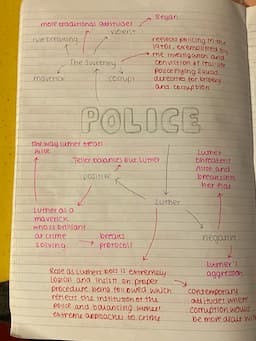 more traditional attitudes
Regan
rulebreaking
violent
The Sweeney
reflects policing in the
1970s, exemplified by
the investigation and
conviction of real life
police Flying Squad
detectives for bribery
and corruption
maverick
corrupt
POLICE
the way Luther treats
Alice
Teller balances out Luther
positive
Luther
Luther
threatens
Alice and
breaks into
her flat
Luther as a
maverick
who is brilliant
at crime
solving
breaks
protocol
negative
Luther's
aggression
Rose as Luthers boss is extremely
logical and insists on proper
procedure being followed which
reflect the institution of the
police and balancing Luthers
extreme approaches to crime
contemporary
attitudes where
corruption would
be more dealt with